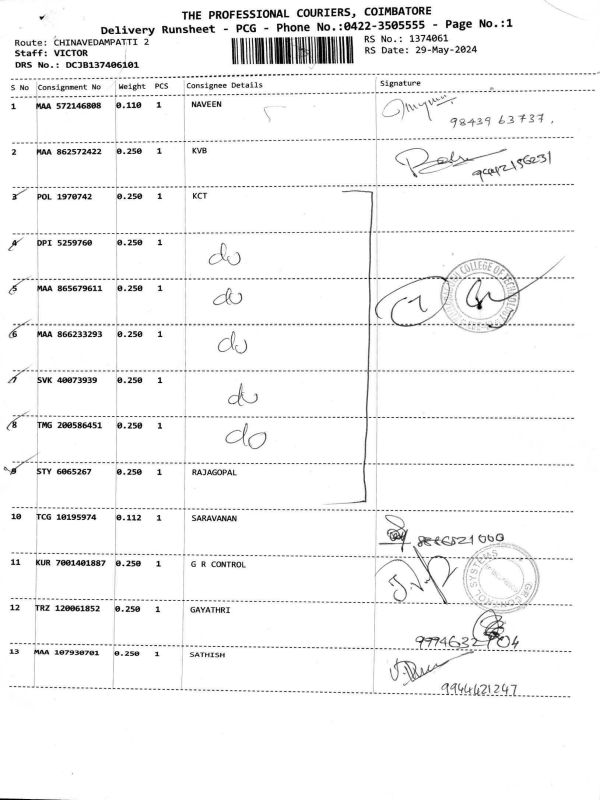 THE PROFESSIONAL COURIERS, COIMBATORE
Delivery Runsheet - PCG - Phone No.:0422-3505555 - Page No.:1
Route: CHINAVEDAMPATTI 2 RS No.: 1374061
Staff: VICTOR RS Date: 29-May-2024
DRS No.: DCJB137406101
S No Consignment No Weight PCS Consignee Details Signature
1 MAA 572146808 0.110 1 NAVEEN
98439 63737.
2 MAA 862572422 0.250 1 KVB
3 POL 1970742 0.250 1 KCT
4 DPI 5259760 0.250 1 do
5 MAA 865679611 0.250 1 do
COLLEGE OF TECHNOLOGY
6 MAA 866233293 0.250 1 do
7 SVK 40073939 0.250 1 do
8 TMG 200586451 0.250 1 do
9 STY 6065267 0.250 1 RAJAGOPAL
10 TCG 10195974 0.112 1 SARAVANAN
11 KUR 7001401887 0.250 1 G R CONTROL
GR CONTROL SYSTEMS
12 TRZ 120061852 0.250 1 GAYATHRI
13 MAA 107930701 0.250 1 SATHISH
9944421247